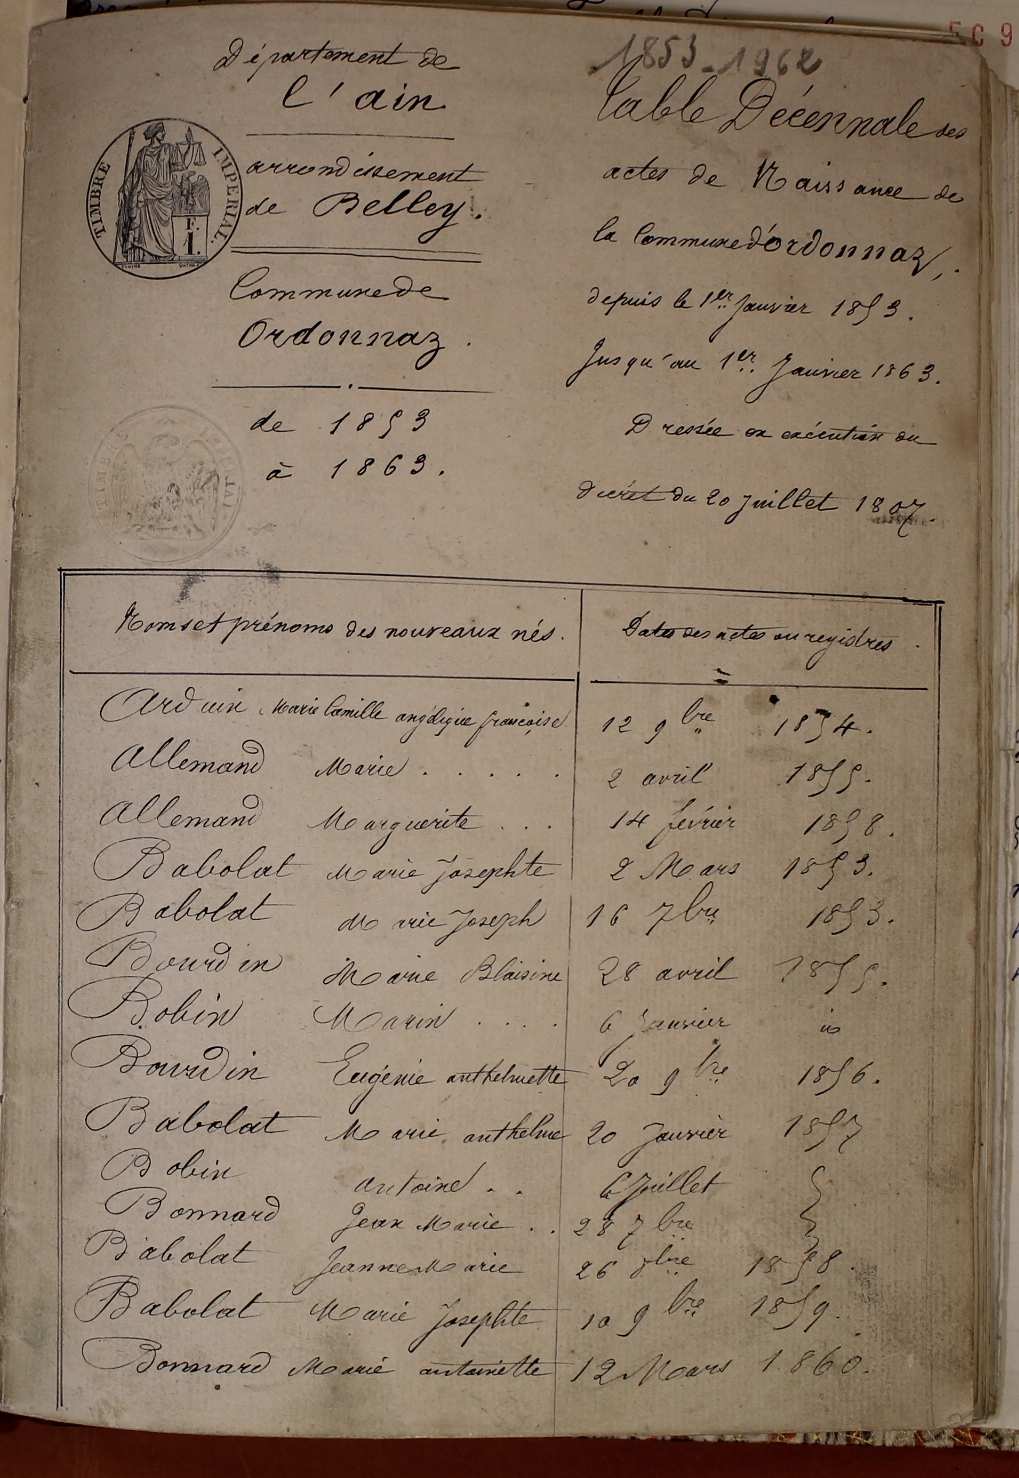 5 C 9
1853-1962
Département de
l'ain
arrondissement
de Belley.
Commune de
Ordonnaz.
de 1853
à 1863.
TIMBRE IMPÉRIAL.
F.
1.
Table Décennale des
actes de Naissance de
la Commune d'Ordonnaz,
depuis le 1er Janvier 1853.
Jusqu'au 1er Janvier 1863.
Dressée en exécution du
décret du 20 Juillet 1807.
Noms et prénoms des nouveaux nés. Dates des actes au registres.
Arduin Marie Camille angélique françoise 12 9bre 1854.
Allemand Marie . . . . . 2 avril 1855.
Allemand Marguerite . . . 14 février 1858.
Babolat Marie Josephte 2 Mars 1853.
Babolat Marie Joseph 16 7bre 1853.
Bourdin Marie Blaisine 28 avril 1855.
Bobin Marin . . . . 6 Janvier
Bourdin Eugénie anthelmette 20 9bre 1856.
Babolat Marie anthelme 20 Janvier 1857
Bobin antoine . . 6 Juillet
Bonnard Jean Marie . . 28 7bre
Babolat Jeanne Marie 26 1858.
Babolat Marie Josephte 10 9bre 1859.
Bonnard Marie antoinette 12 Mars 1860.